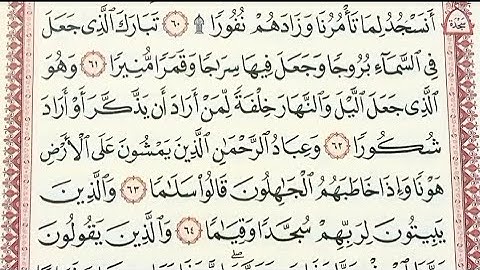 أَنَسْجُدُ لِمَا تَأْمُرُنَا وَزَادَهُمْ نُفُورًا ۩ ٦٠ تَبَارَكَ ٱلَّذِى جَعَلَ
فِى ٱلسَّمَآءِ بُرُوجًا وَجَعَلَ فِيهَا سِرَٰجًا وَقَمَرًا مُّنِيرًا ٦١ وَهُوَ
ٱلَّذِى جَعَلَ ٱلَّيْلَ وَٱلنَّهَارَ خِلْفَةً لِّمَنْ أَرَادَ أَن يَذَّكَّرَ أَوْ أَرَادَ
شُكُورًا ٦٢ وَعِبَادُ ٱلرَّحْمَٰنِ ٱلَّذِينَ يَمْشُونَ عَلَى ٱلْأَرْضِ
هَوْنًا وَإِذَا خَاطَبَهُمُ ٱلْجَٰهِلُونَ قَالُوا۟ سَلَٰمًا ٦٣ وَٱلَّذِينَ
يَبِيتُونَ لِرَبِّهِمْ سُجَّدًا وَقِيَٰمًا ٦٤ وَٱلَّذِينَ يَقُولُونَ